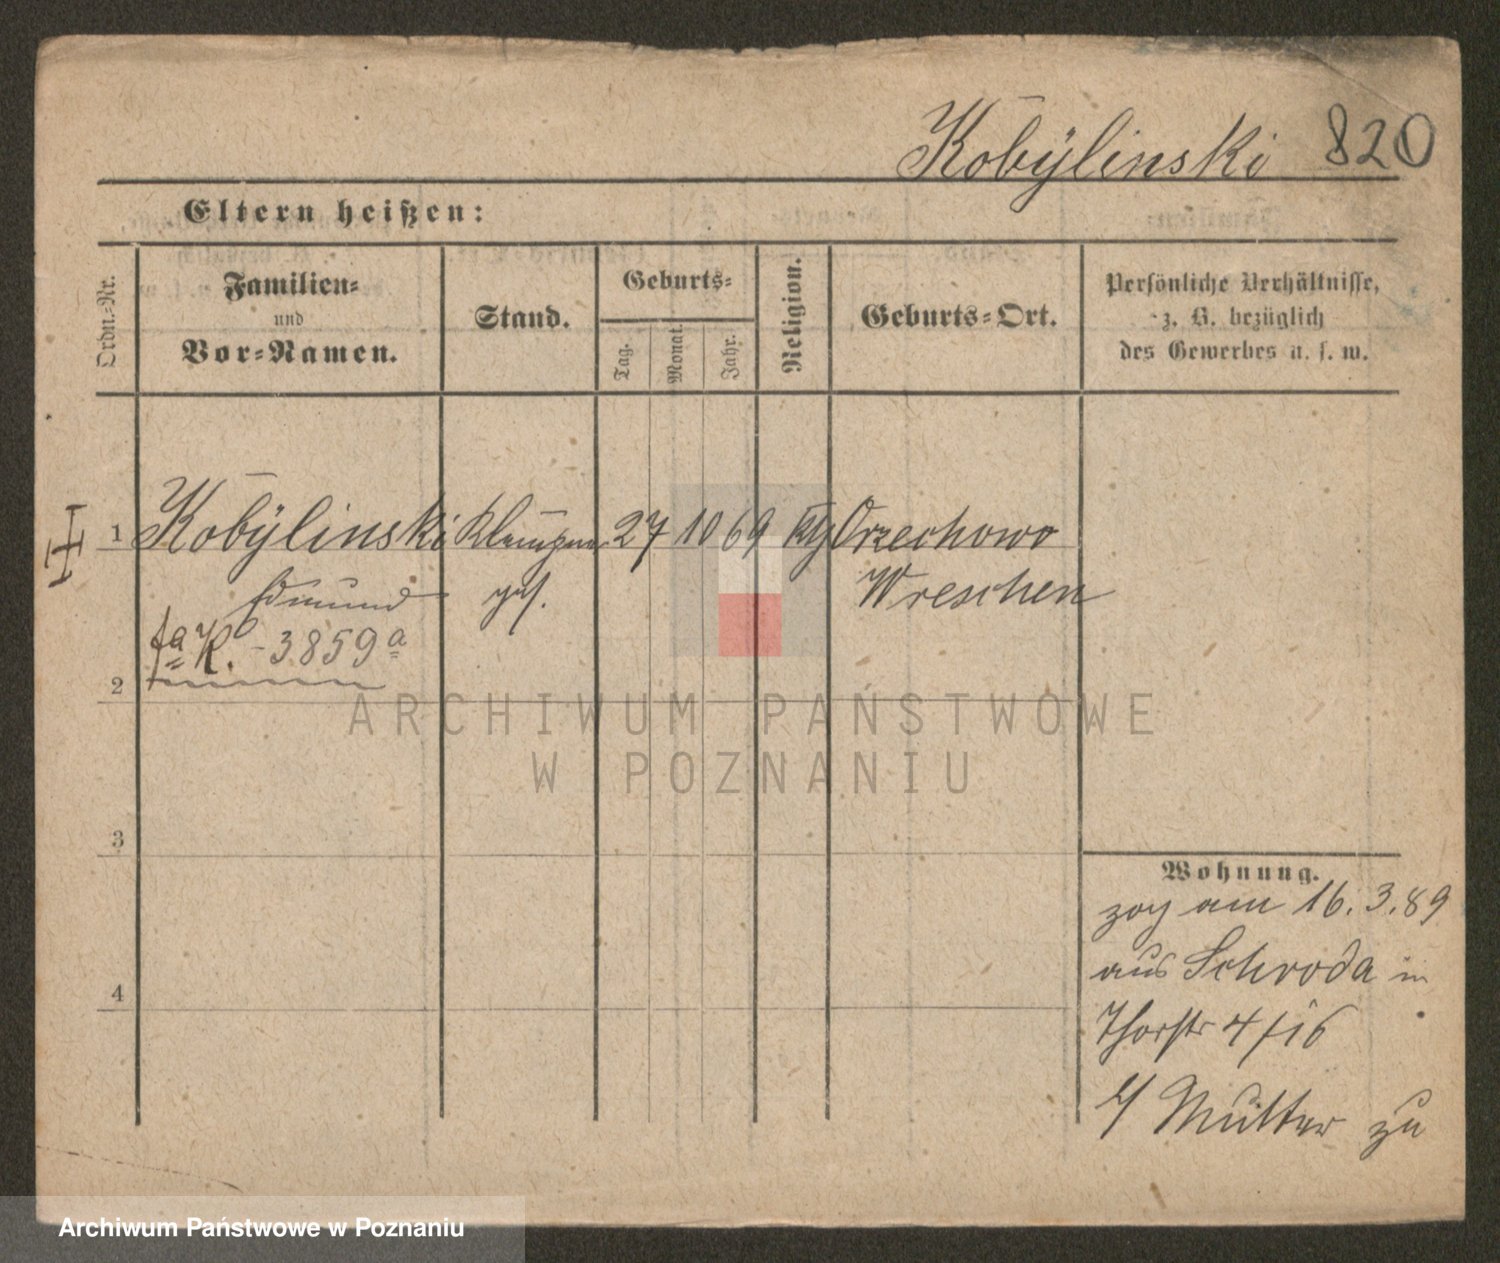 Kobÿlinski 820
Eltern heißen:
Ordn.-Nr.
Familien-
und
Vor-Namen.
Stand.
Geburts-
Tag.
Monat.
Jahr.
Religion.
Geburts-Ort.
Persönliche Verhältnisse,
z. B. bezüglich
des Gewerbes u. s. w.
1 Kobÿlinski Klempner 27 10 69 Orzechowo
Edmund ges. Wreschen
fa K. - 3859a
2
ARCHIWUM PAŃSTWOWE
W POZNANIU
3
Wohnung.
zog am 16.3.89
aus Schroda in
4
Thorstr 4/16
Mutter zu
Archiwum Państwowe w Poznaniu